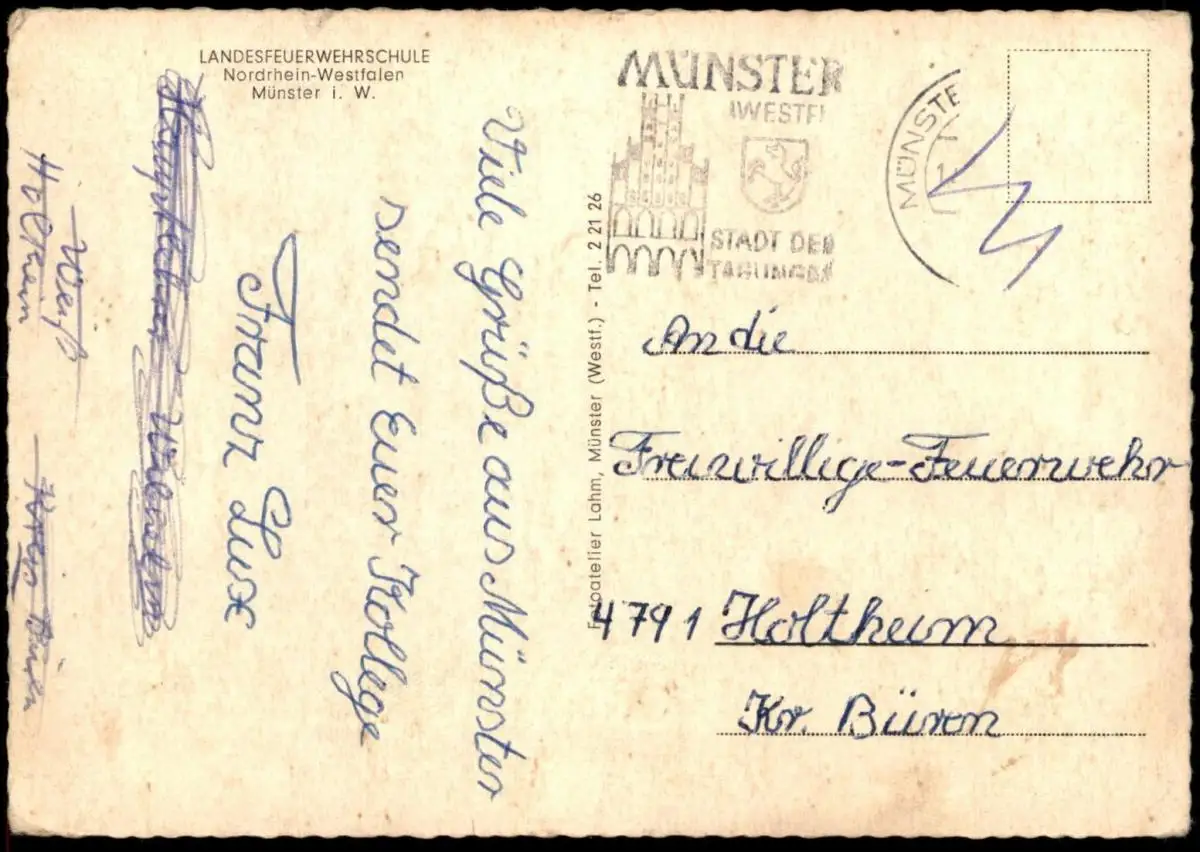 LANDESFEUERWEHRSCHULE
Nordrhein-Westfalen
Münster i. W.
Viele Grüße aus Münster
sendet Euer Kollege
Franz Lux
Holtheim
Kreis Büren
Fotoatelier Lahm, Münster (Westf.) - Tel. 2 21 26
MÜNSTER
(WESTF)
STADT DER
TAGUNGEN
MÜNSTE
An die
Freiwillige-Feuerwehr
4791 Holtheim
Kr. Büren